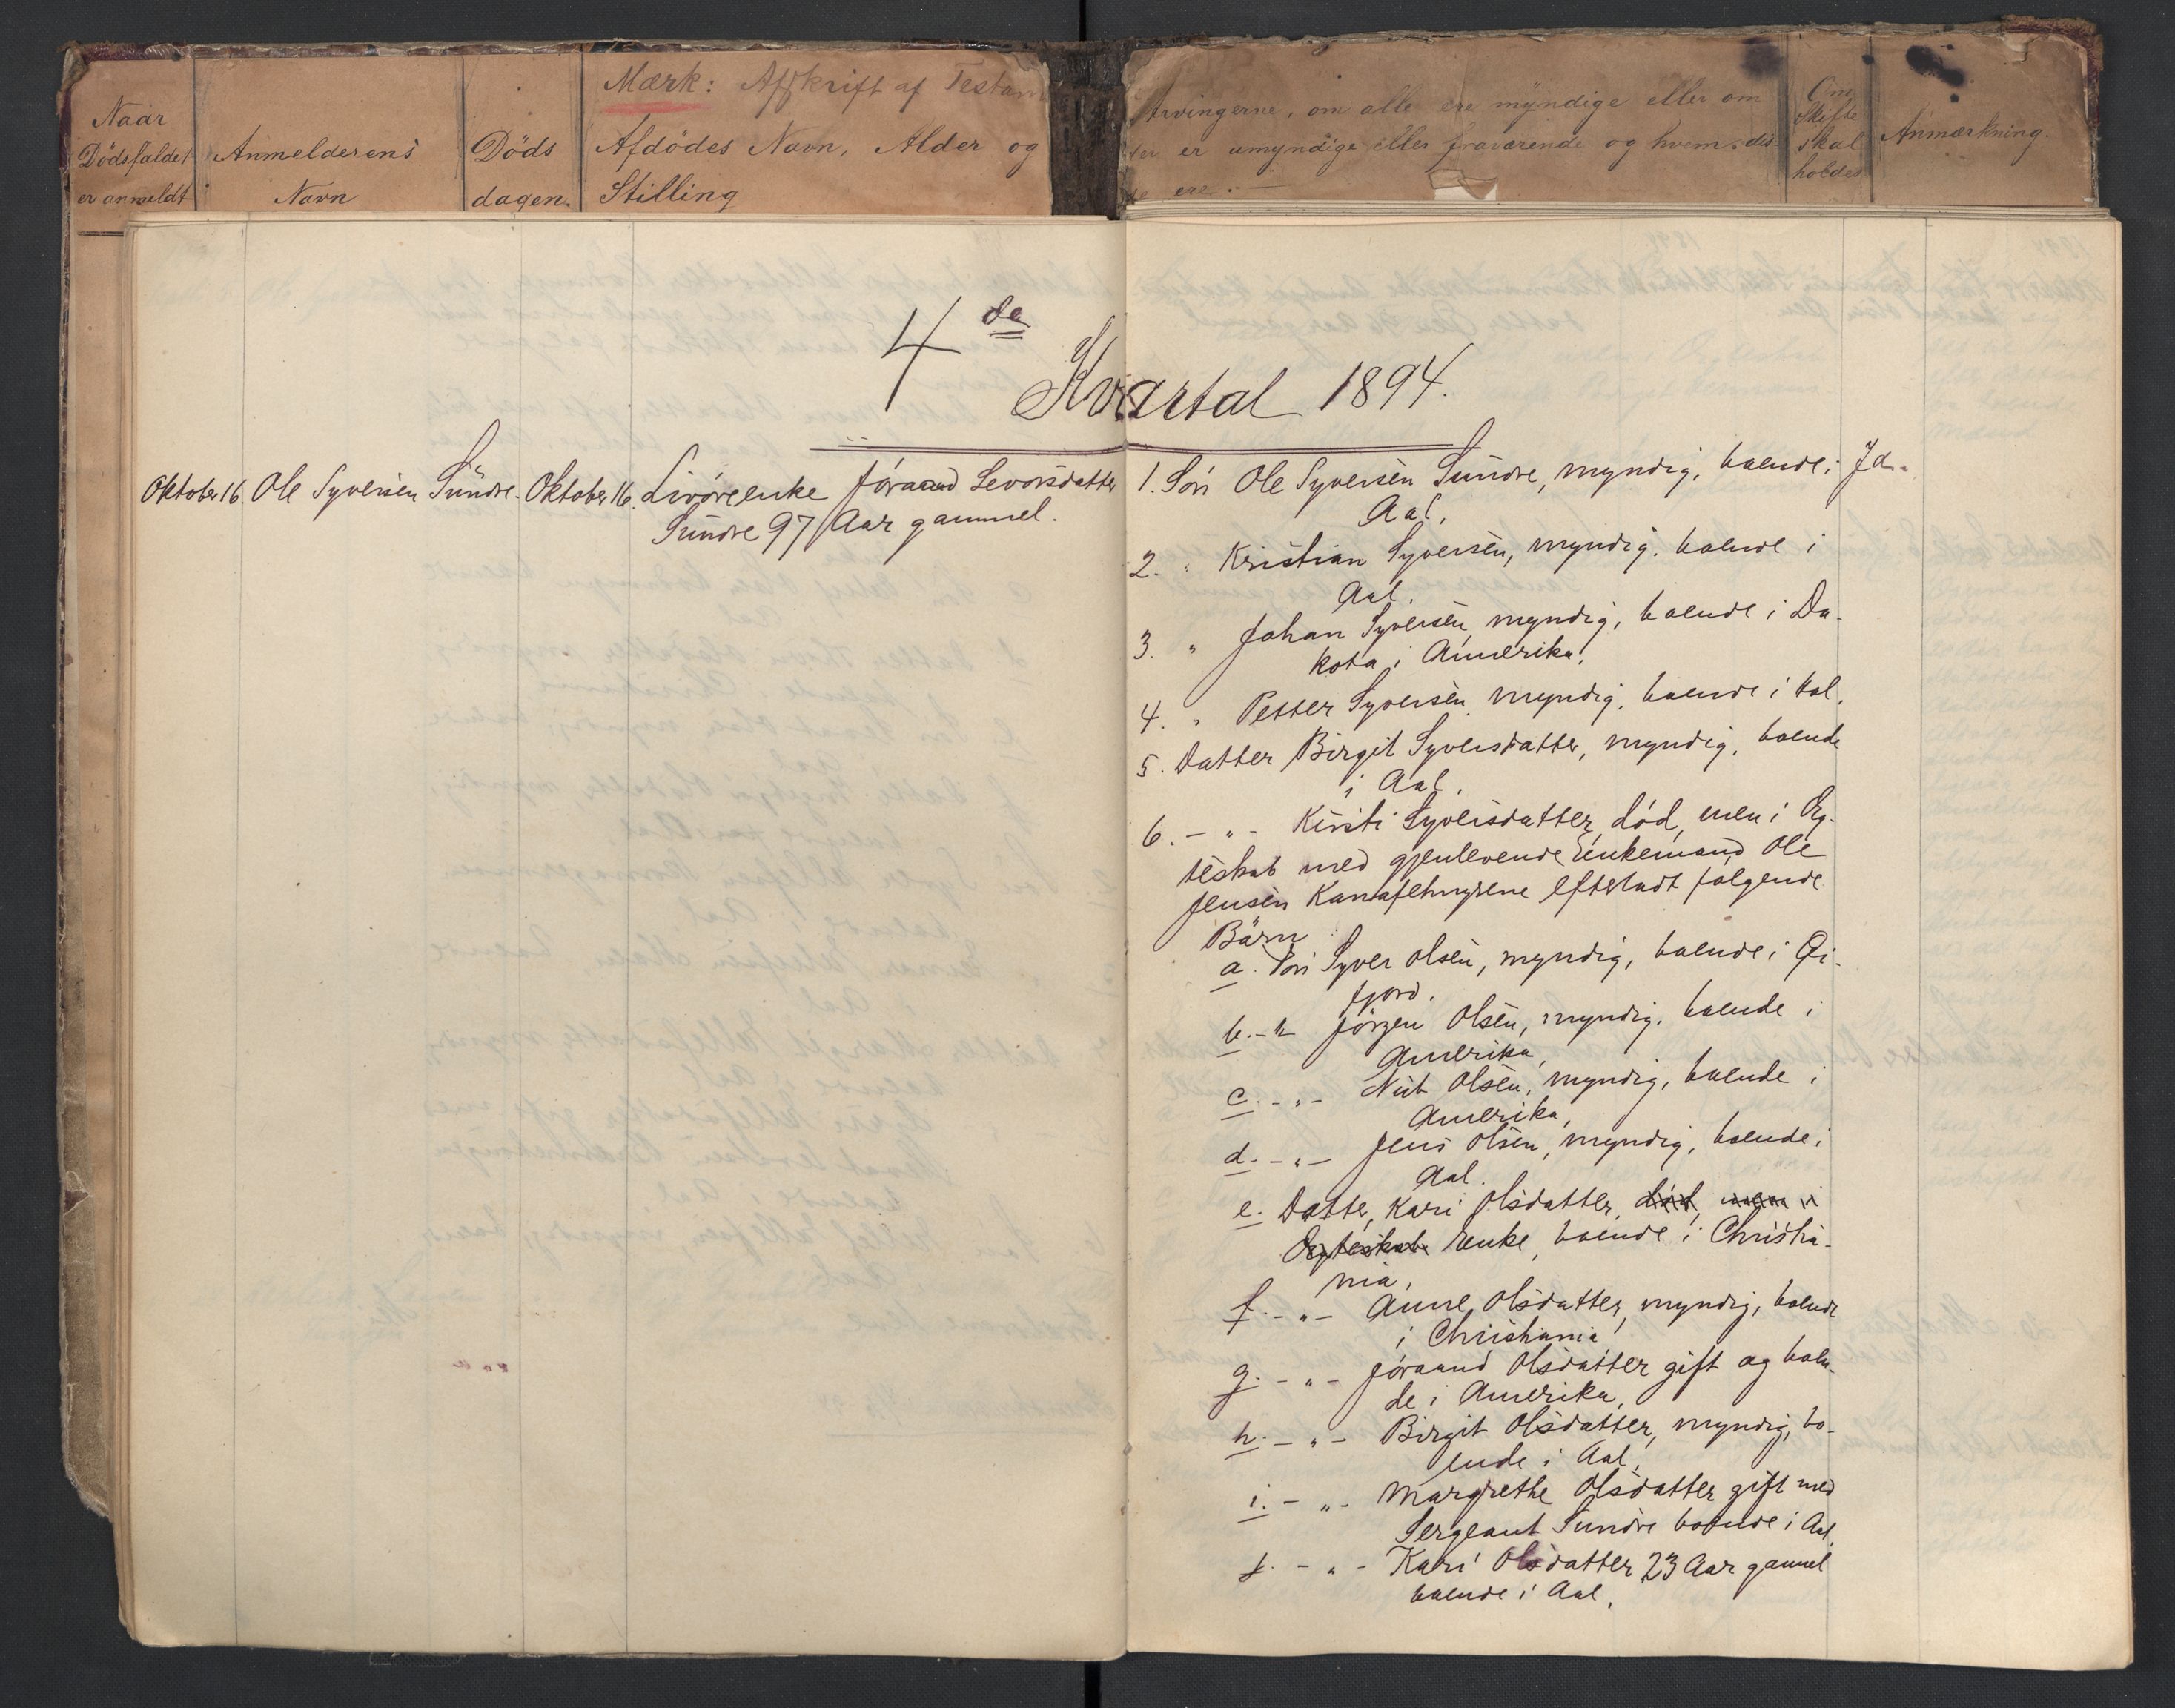 Naar
Dödsfaldet
er anmeldt
Anmelderens
Navn
Döds
dagen.
Mærk: Afskrift af Testam
Afdödes Navn, Alder og
Stilling
Arvingerne, om alle ere myndige eller om
er umyndige eller fraværende og hvem dis
ere.
Om
Skifte
skal
holdes
Anmærkning.
4de
Kvartal 1894.
Oktober 16.
Ole Syversen Sundre.
Oktober 16.
Livöreenke Jöraand Levorsdatter
Sundre 97 Aar gammel.
1. Sön Ole Syversen Sundre, myndig, boende i
Aal.
Ja.
2. " Kristian Syversen, myndig, boende i
Aal.
3. " Johan Syversen, myndig, boende i Da-
kota i Amerika.
4. " Petter Syversen myndig, boende i Aal.
5. Datter Birgit Syversdatter, myndig, boende
i Aal.
6. - " - Kirsti Syversdatter, död, men i Æg-
teskab med gjenlevende Enkemand Ole
Jensen efterladt følgende
Börn
a. Sön Syver Olsen, myndig, boende i Ei-
fjord.
b. - " Jörgen Olsen, myndig, boende i
Amerika,
c. - " - Nub Olsen, myndig, boende i
Amerika,
d. - " - Jens Olsen, myndig, boende i
Aal.
e. Datter, Kari Olsdatter, död, men i
Ægteskab Enke, boende i Christia-
nia,
f. - " - Anne Olsdatter, myndig, boende
i Christiania
g. - " - Jöraand Olsdatter gift og boen-
de i Amerika,
h. - " - Birgit Olsdatter, myndig, bo-
ende i Aal,
i. - " - Margrethe Olsdatter gift med
Sergeant Sundre boende i Aal,
j. - " - Kari Olsdatter 23 Aar gammel
boende i Aal.